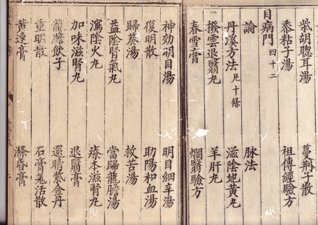 柴胡聰耳湯 蔓荊子散
黍粘子湯 祖傳經驗方
目病門 四十二
論 脉法
丹溪方法 凡十條 滋陰地黃丸
撥雲退翳丸 羊肝丸
春雪膏 爛翳驗方
神効明目湯 明目細辛湯
復明散 助陽和血湯
歸葵湯 救苦湯
益陰腎氣丸 當歸龍膽湯
瀉陰火丸 療本滋腎丸
加味滋腎丸 退翳膏
飲子 還睛紫金丹
重明散 石膏羌活散
黃連膏 滌昏膏